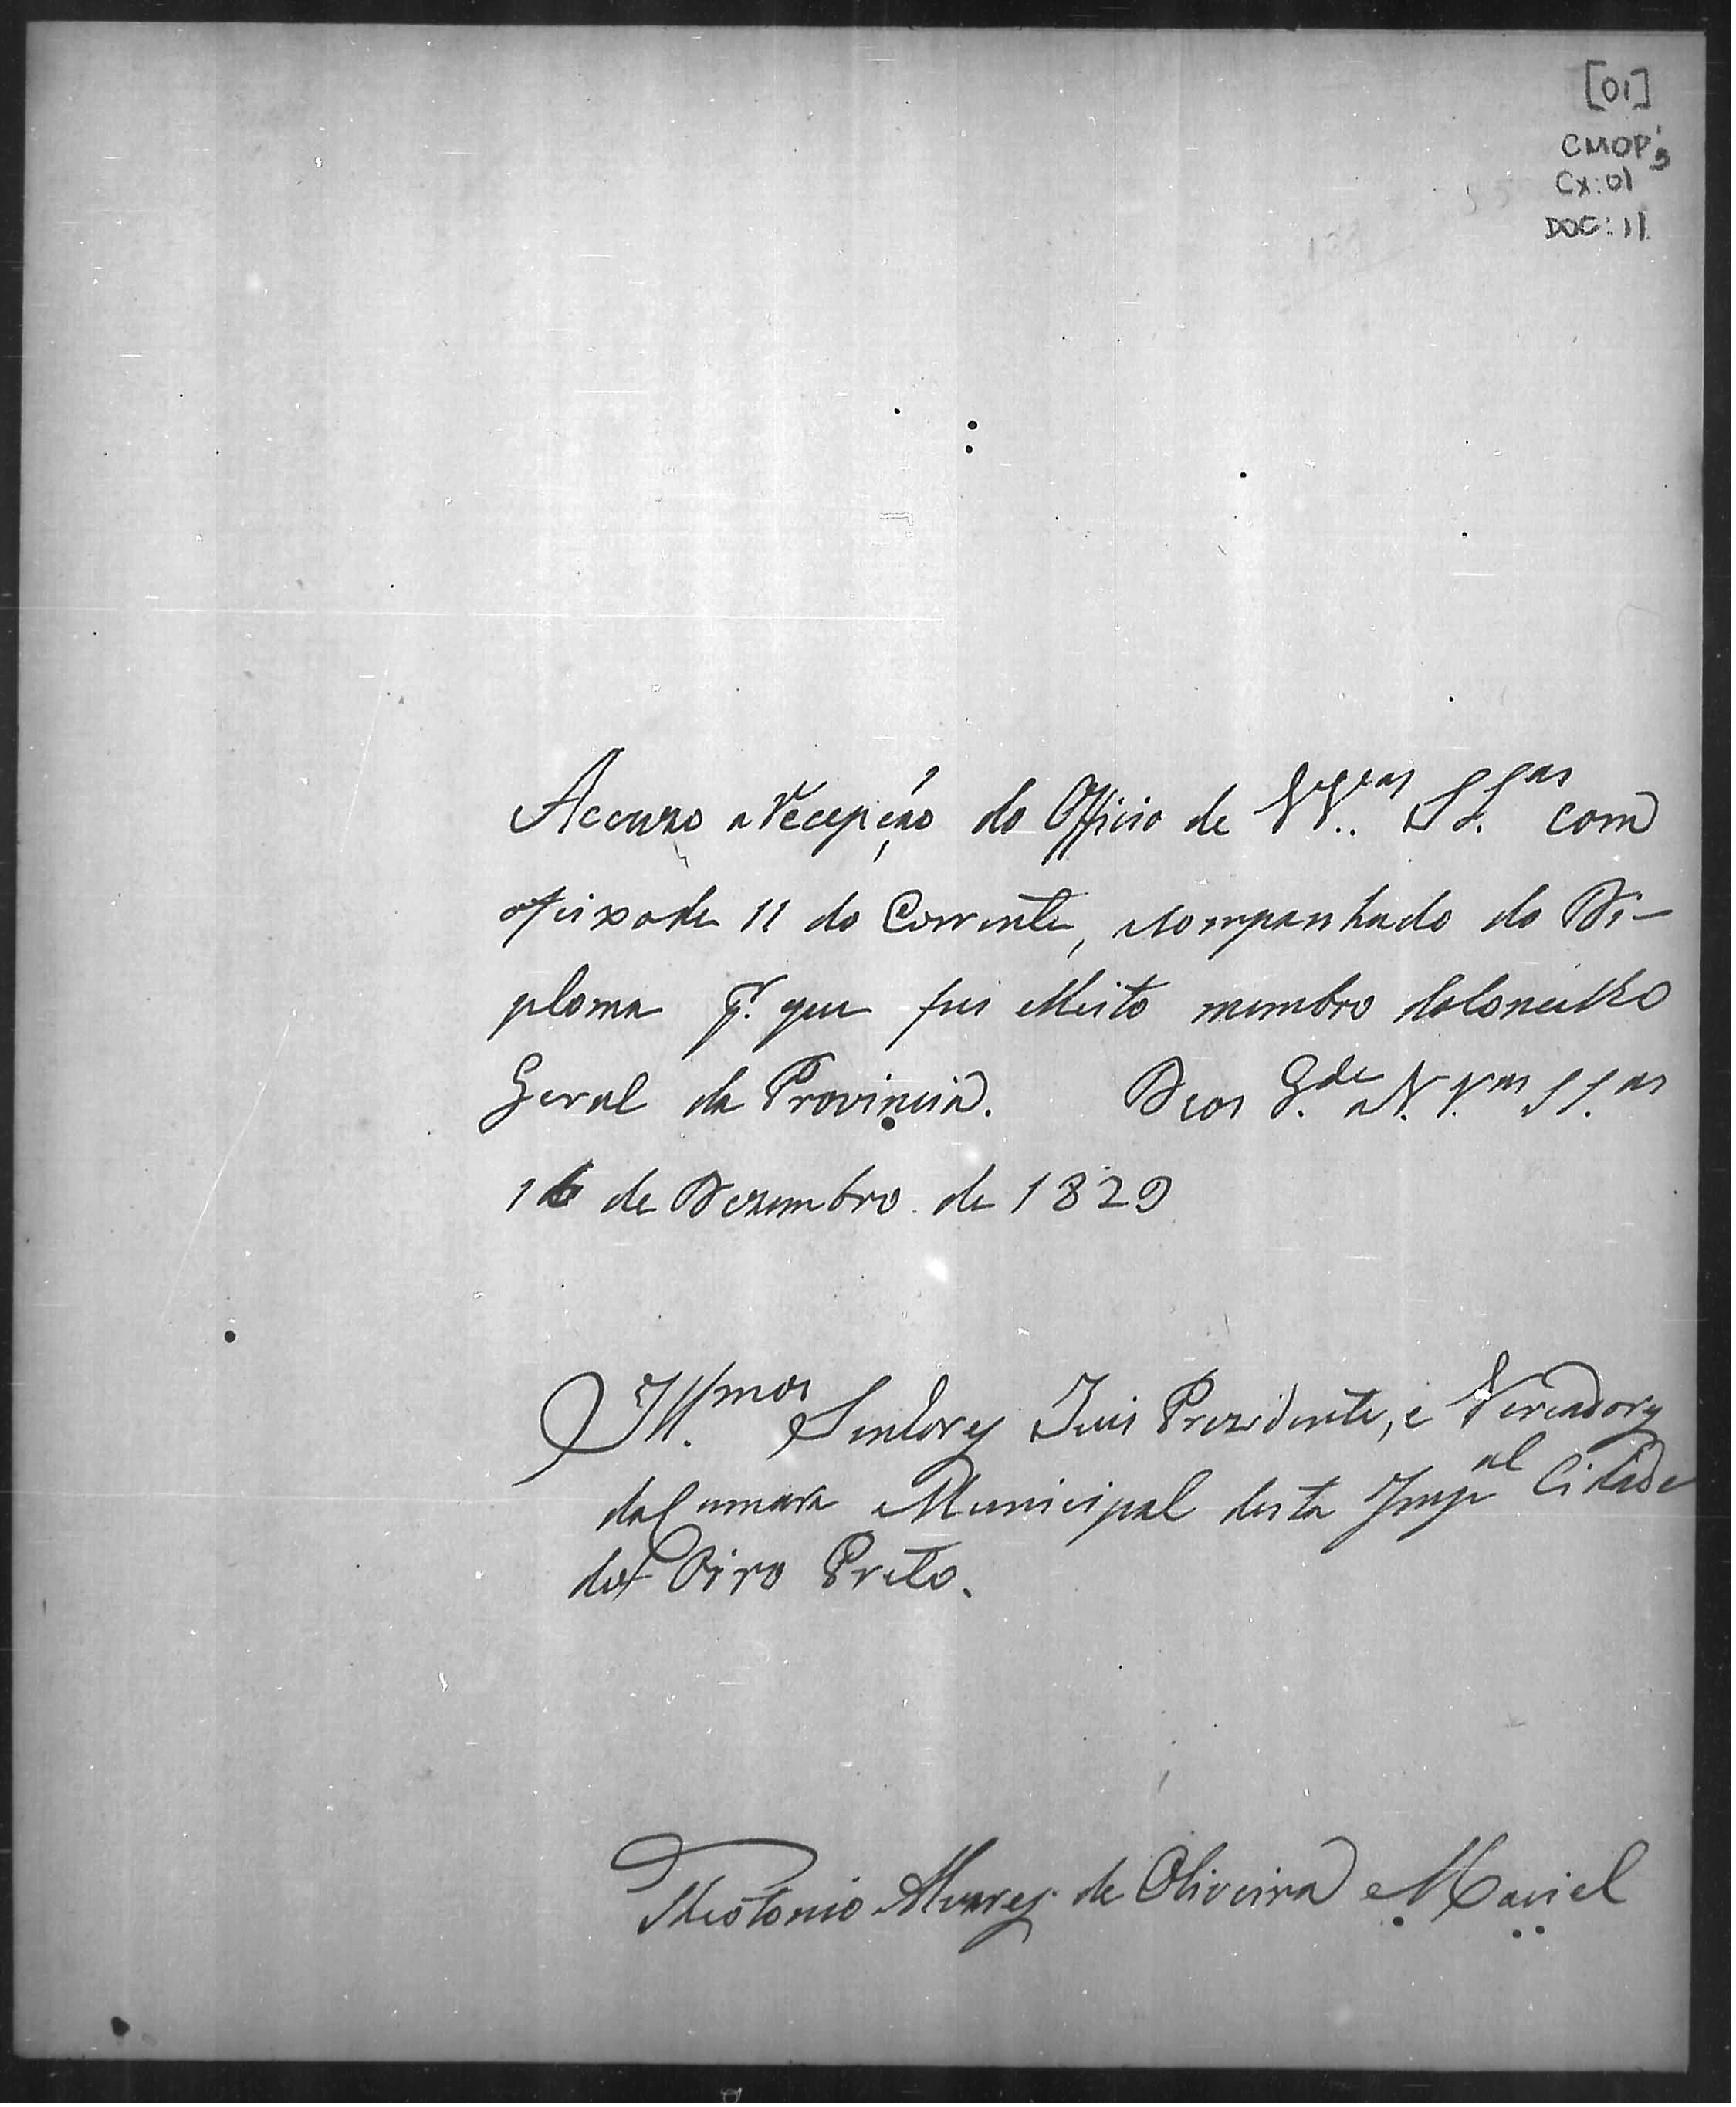 [01]
CMOP3
Cx: 01
DOC: 11
Accuzo a Recepção do Officio de VV.as SS.as com
o feixo de 11 do Corrente, acompanhado do Di-
ploma p.r que fui elleito membro do Concelho
Geral da Provincia. Deos G.de a V.V.as S S.as
16 de Dezembro de 1829
Ill.mos Senhores Juis Prezidente, e Vereadores
da Camara Municipal desta Imp.al Cidade
do Oiro Preto.
Theotonio Alvares de Oliveira Maciel